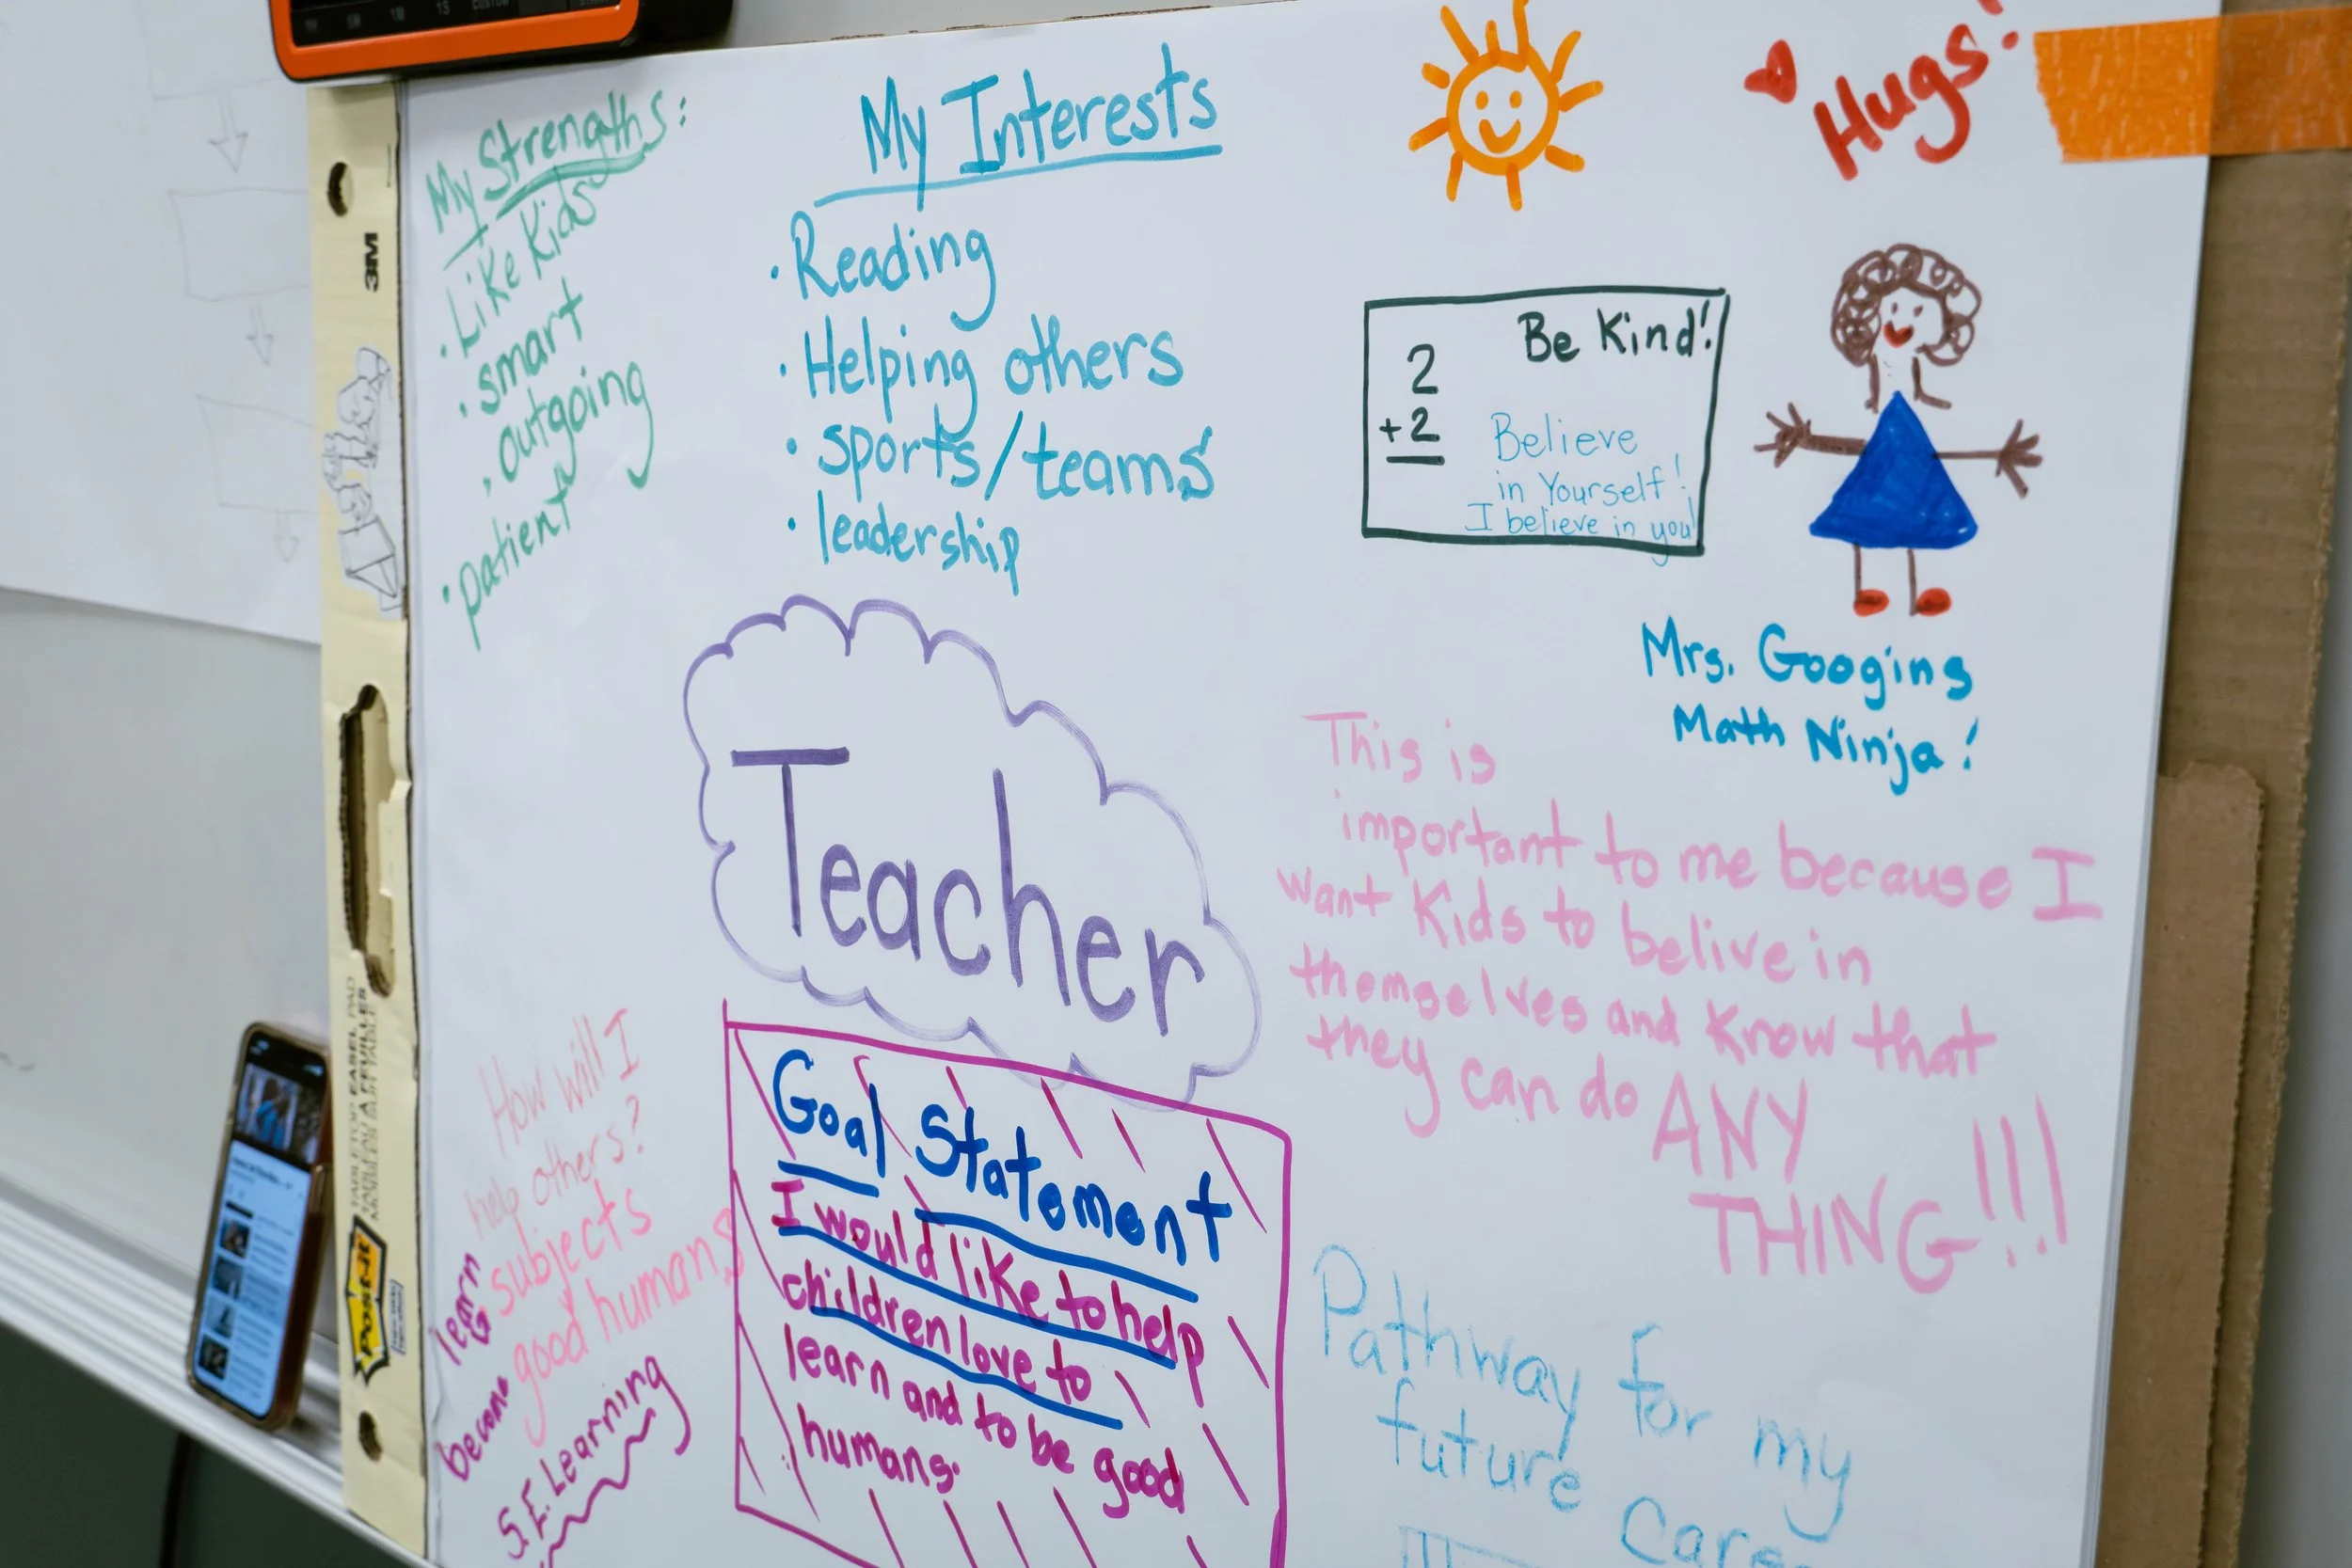 My Strengths:
· Like Kids
· smart
· outgoing
· patient
My Interests
· Reading
· Helping others
· sports/teams
· leadership
Hugs!
2
+2
Be Kind!
Believe
in Yourself!
I believe in you!
Mrs. Googins
Math Ninja!
Teacher
This is
important to me because I
want Kids to belive in
themselves and Know that
they can do ANY
THING!!!
How will I
help others?
learn subjects
become good humans
S.E. Learning
Goal Statement
I would like to help
children love to
learn and to be good
humans.
Pathway for my
future
3M
TABLETOP EASEL PAD
Post-it
1M
5M
1M
1S
CUSTOM